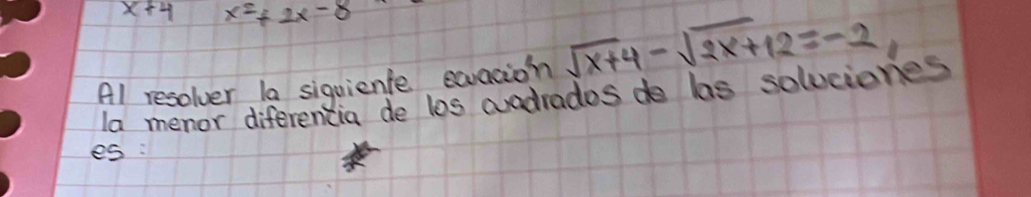 x+4 x²+2x-8
Al resolver la siguiente ecuación √x+4 - √2x+12 = -2,
la menor diferencia de los cuadrados de las soluciones
es: